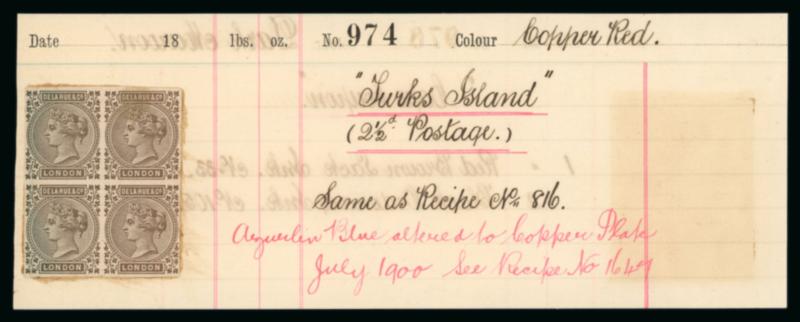 Date 18 lbs. oz. No. 974 Colour Copper Red.
"Turks Island"
(2½d Postage.)
Same as Recipe No. 816.
Blue altered to Copper Plate
July 1900 See Recipe No 1647
DE LA RUE & Co DE LA RUE & Co
LONDON LONDON
DE LA RUE & Co DE LA RUE & Co
LONDON LONDON